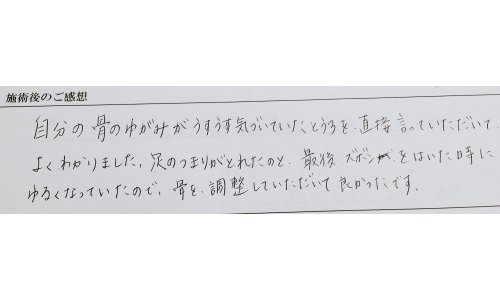 施術後のご感想
自分の骨のゆがみがうすうす気づいていたところを、直接言っていただいて、
よくわかりました。足のつまりがとれたのと、最後、ズボンをはいた時に
ゆるくなっていたので、骨を、調整していただいて良かったです。